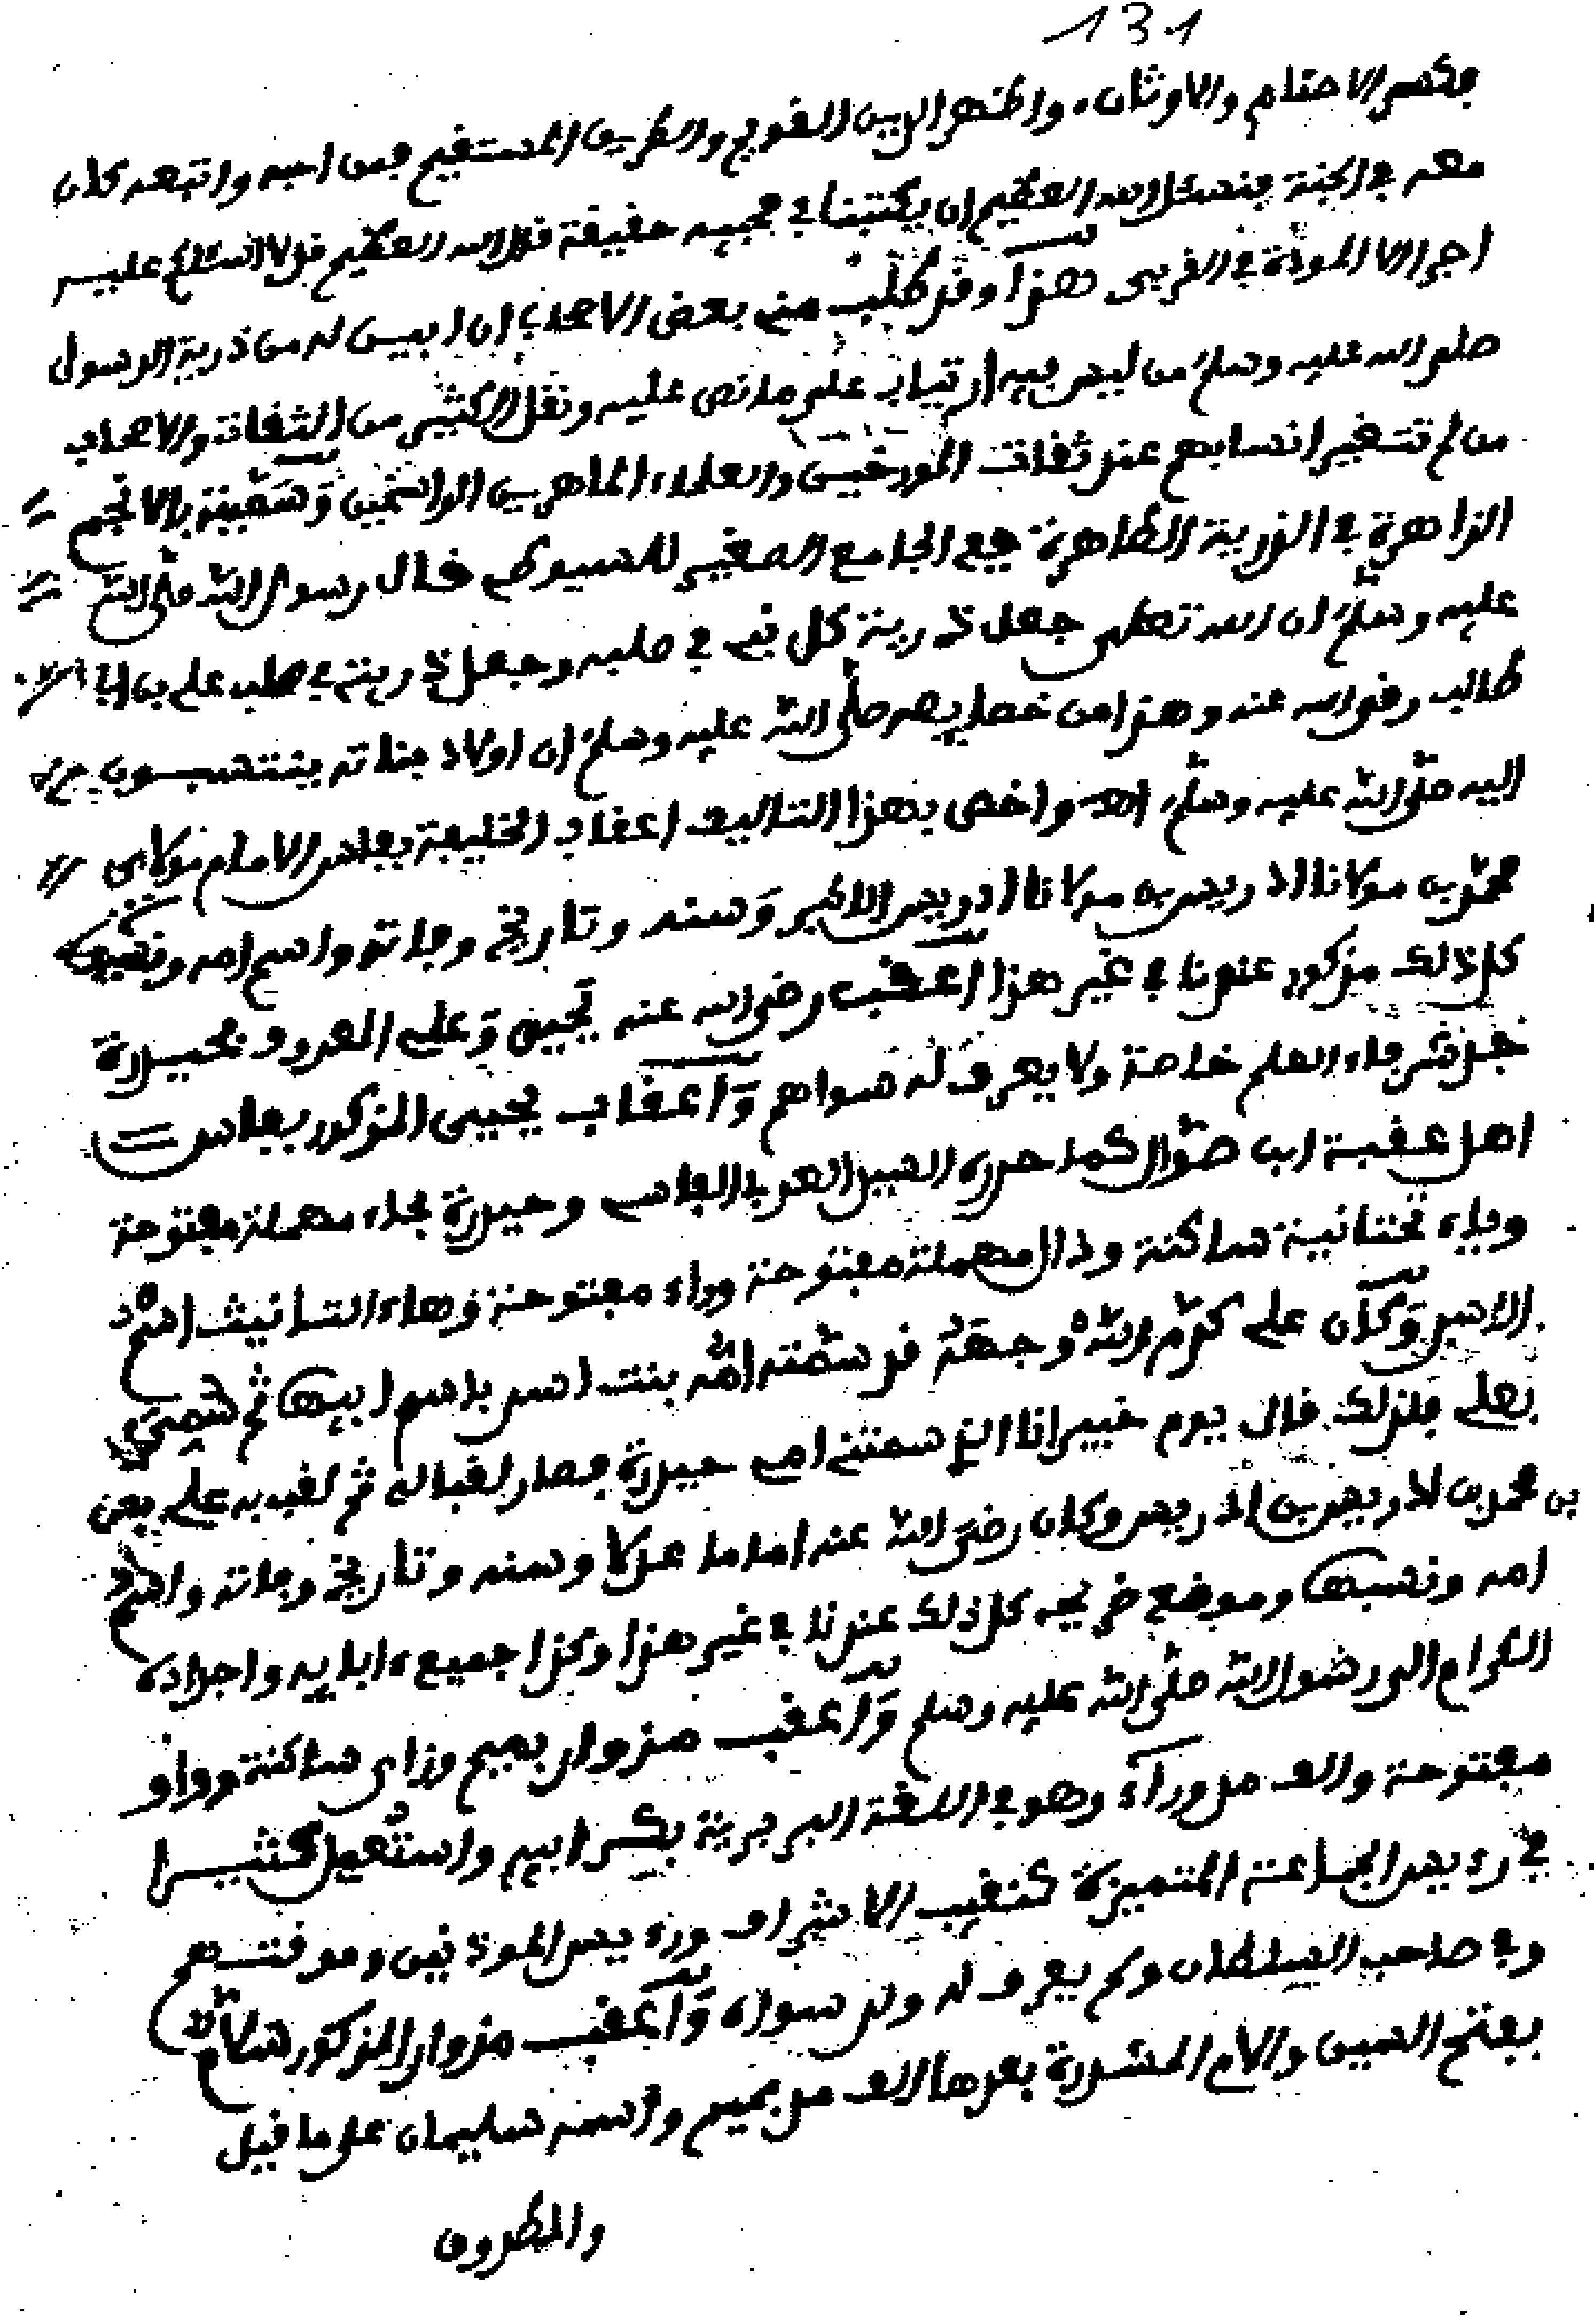 131
فكسر الاصنام والاوثان. واظهر الدين القويم والطريق المستقيم فمن احبه واتبعه كان
معه في الجنة فنسئل الله العظيم ان يكتبنا في محبيه حقيقة قال الله العظيم قل لا اسئلكم عليه
اجرا الا المودة في القربى هذا وقد طلب مني بعض الاحباب ان ابين له من ذرية الرسول
صلى الله عليه وسلم من ليس فيه ارتياب على ما نص عليه ونقل الكثير من الثقات والاصحاب
من لم تتغير انسابهم عند ثقات المورخين والعلماء الماهرين الراسخين وسميته بالانجم
الزاهرة في الذرية الطاهرة ففي الجامع الصغير للسيوطي قال رسول الله صلى الله
عليه وسلم ان الله تعلى جعل ذرية كل نبي في صلبه وجعل ذريتي في صلب علي بن ابي
طالب رضي الله عنه وهذا من خصايصه صلى الله عليه وسلم ان اولاد بناته ينتسبون
اليه صلى الله عليه وسلم اهـ واخص بهذا التاليف اعقاب الخليفة بفاس الامام مولاي
محمد بن مولانا ادريس بن مولانا ادريس الاكبر وسنه وتاريخ وفاته واسم امه ونسبها
كل ذلك مذكور عندنا في غير هذا اعقب رضي الله عنه يحيى وعلي المعروف بحيدرة
جد شرفاء العلم خاصة ولا يعرف له سواهم واعقاب يحيى المذكور بفاس
اهل عقبة ابن صوال كما حرره السيد العربي الفاسي وحيدرة بحاء مهملة مفتوحة
وياء تحتانية ساكنة ودال مهملة مفتوحة وراء مفتوحة وهاء التانيث اسم
الاسد وكان علي كرم الله وجهه قد سمته امه بنت اسد باسم ابيها ثم سمي
بعلي فلذلك قال يوم خيبر انا الذي سمتني امي حيدرة فصار لقبا له ثم لقب به علي يعن
بن محمد بن ادريس بن ادريس وكان رضي الله عنه اماما عدلا وسنه وتاريخ وفاته واسم
امه ونسبها وموضع ضريحه كل ذلك عندنا في غير هذا وكذا جميع ءابايه واجداده
الكرام الى رسول الله صلى الله عليه وسلم واعقب مزوار بميم وزاي ساكنة وواو
مفتوحة والف مد وراء وهو في اللغة البربرية بكر ابيه واستعمل كثيرا
في رءيس الجماعة المتميزة كنقيب الاشراف ورءيس الموذنين وموقتهم
وفي صاحب السلطان ولم يعرف له ولد سواه واعقب مزوار المذكور سلام
بفتح السين واللام المشددة بعدها الف مد بميم واسمه سليمان على ما قيل
والمطرون